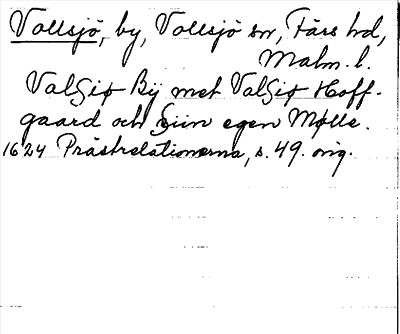 Vallsjö, by, Vallsjö sn, Färs hd,
Malm. l.
ValSiø Bÿ met ValSiø Hoff-
gaard och Siin egen Mølle.
1624 Prästrelationerna, s. 49. orig.